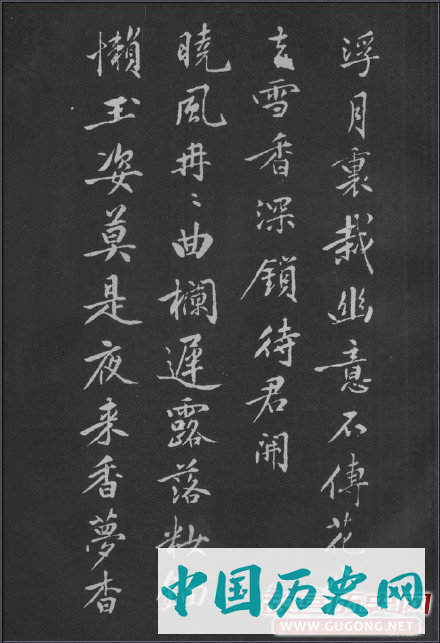 浮月裏栽幽意不傳花
去雪香深鎖待君開
曉風冉〻曲欄遲露落妝
懶玉姿莫是夜來香夢杳
中国历史网
WWW.GUGONG.NET